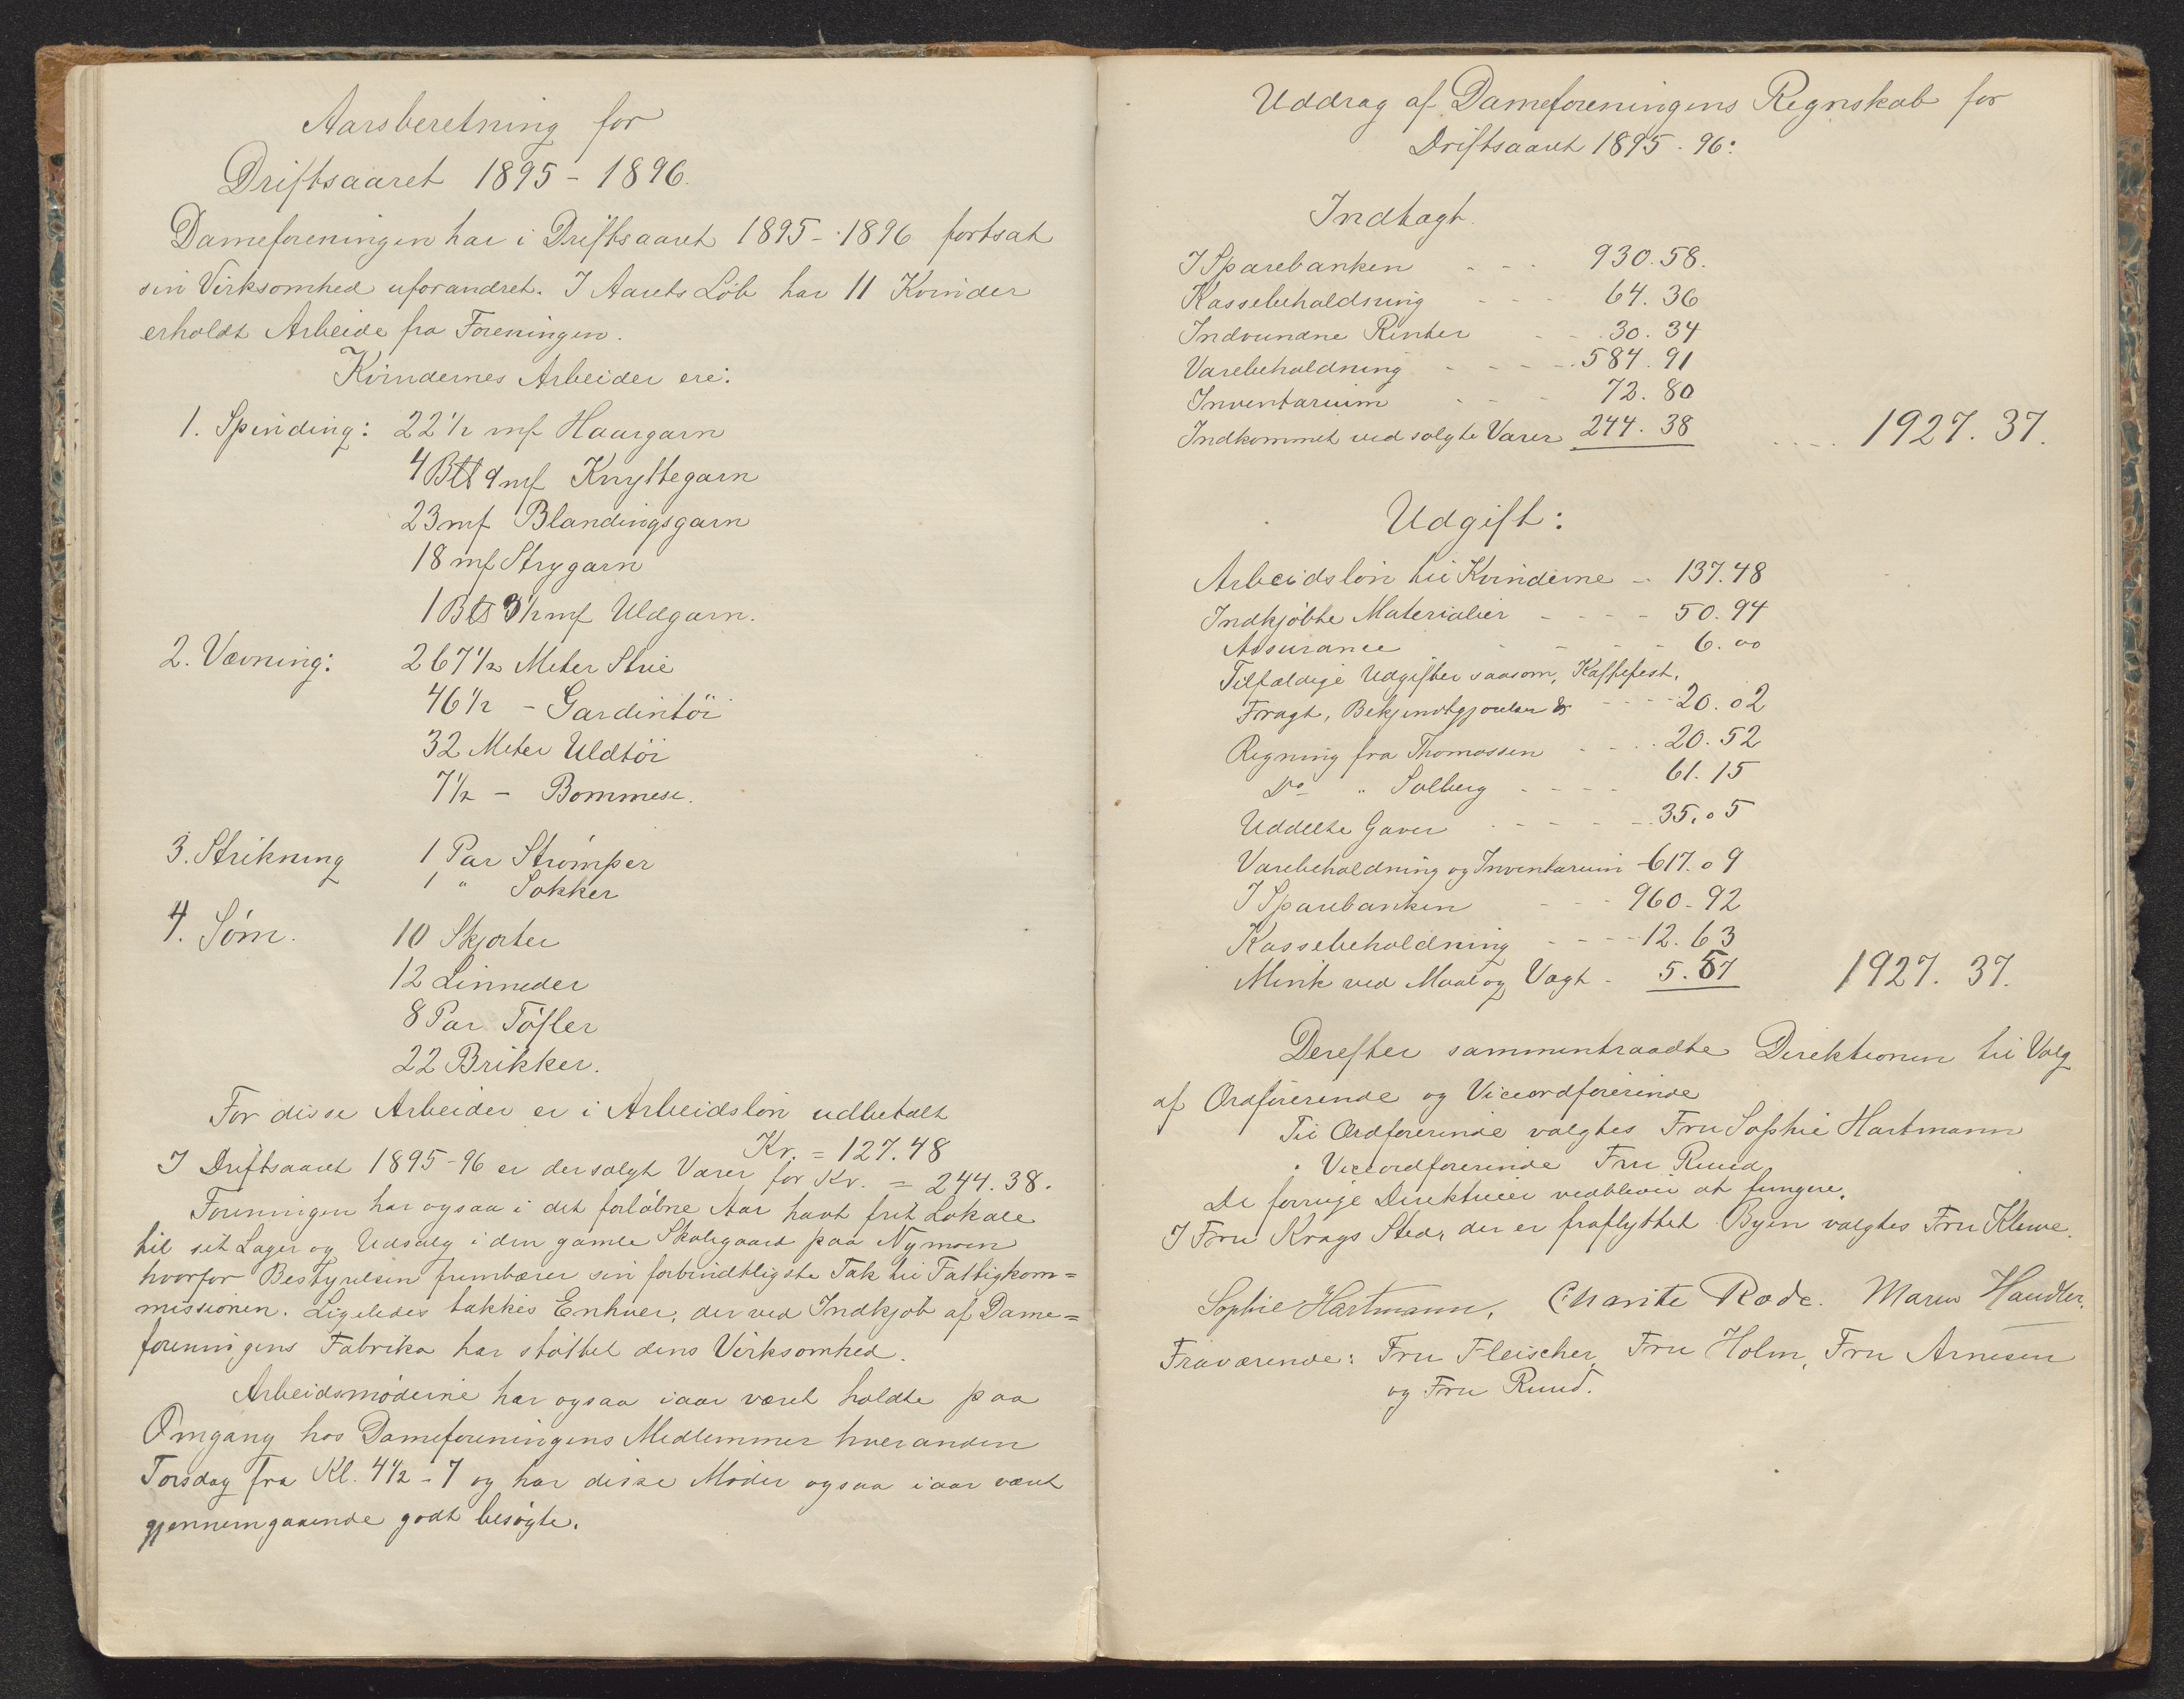 Aarsberetning for
Driftsaaret 1895 - 1896.
Dameforeningen har i Driftsaaret 1895 - 1896 fortsat
sin Virksomhed uforandret. I Aarets Løb har 11 Kvinder
erholdt Arbeide fra Foreningen.
Kvindernes Arbeider ere:
1. Spinding: 22 1/2 mƒ Haargarn
4 Btt 9 mƒ Knyttegarn
23 mƒ Blandingsgarn
18 mƒ Strygarn
1 Btt 3 1/2 mƒ Uldgarn.
2. Vævning: 267 1/2 Meter Strie
46 1/2 - Gardintöi
32 Meter Uldtöi
7 1/2 - Bommesi.
3. Strikning 1 Par Strömper
1 " Sokker
4. Söm. 10 Skjorter
12 Linneder
8 Par Töfler
22 Brikker.
For disse Arbeider er i Arbeidslön udbetalt
Kr. = 127.48
I Driftsaaret 1895-96 er der solgt Varer for Kr. = 244.38.
Foreningen har ogsaa i det forløbne Aar havt frit Lokale
til sit Lager og Udsalg i den gamle Skolegaard paa Nymoen
hvorfor Bestyrelsen frembærer sin forbindtligste Tak til Fattigkom=
missionen. Ligeledes takkes Enhver, der ved Indkjøb af Dame=
foreningens Fabrika har støttet dens Virksomhed.
Arbeidsmöderne har ogsaa iaar været holdte paa
Omgang hos Dameforeningens Medlemmer hveranden
Torsdag fra Kl. 4 1/2 - 7 og har disse Møder ogsaa iaar været
gjennemgaaende godt besøgte.
Uddrag af Dameforeningens Regnskab for
Driftsaaret 1895 - 96:
Indtægt.
I Sparebanken - - - 930.58.
Kassebeholdning - - - 64.36
Indvundne Renter - - 30.34
Varebeholdning - - - - 584.91
Inventarium - - - 72.80
Indkommet ved solgte Varer 244.38 .... 1927.37.
Udgift:
Arbeidslön til Kvinderne - 137.48
Indkjøbte Materialier - - - - 50.94
Assurance - - - - 6.00
Tilfældige Udgifter saasom, Kaffefest,
Fragt, Bekjendtgjørelser &c - - - 20.02
Regning fra Thomassen - - - 20.52
Do " Solberg - - - - 61.15
Uddelte Gaver - - - - - 35.05
Varebeholdning og Inventarium - 617.09
I Sparebanken - - - 960.92
Kassebeholdning - - - - 12.63
Mink ved Maal og Vægt - 5.57 1927.37.
Derefter sammentraadte Direktionen til Valg
af Ordførerinde og Viceordførerinde
Til Ordførerinde valgtes Fru Sophie Hartmann
" Viceordførerinde Fru Ruud
De forrige Direktricer vedblever at fungere.
I Fru Krags Sted, der er fraflyttet Byen valgtes Fru Kluwe.
Sophie Hartmann. Charite Rode. Maren Handler.
Fraværende: Fru Fleischer, Fru Holm, Fru Arnesen
og Fru Ruud.